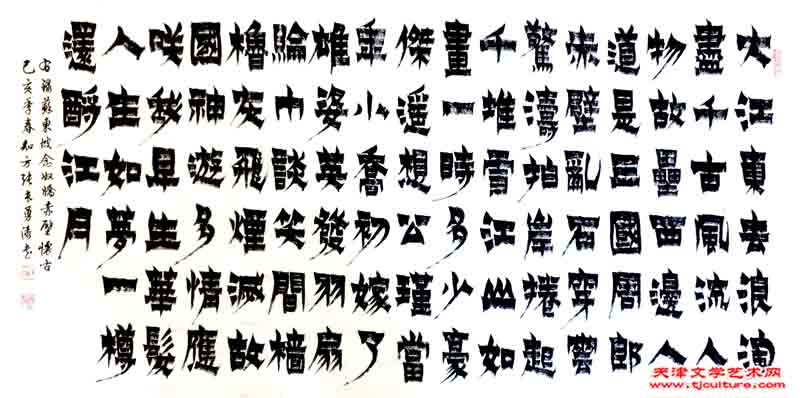 大江東去浪淘
盡千古風流人
物故壘西邊人
道是三國周郎
赤壁亂石穿雲
驚濤拍岸捲起
千堆雪江山如
畫一時多少豪
傑遥想公瑾當
年小喬初嫁了
雄姿英發羽扇
綸巾談笑間檣
櫓灰飛煙滅故
國神遊多情應
咲我早生華髮
人生如夢一樽
還酹江月
右錄蘇東坡念奴嬌赤壁懷古
己亥季春
天津文学艺术网
www.tjculture.com